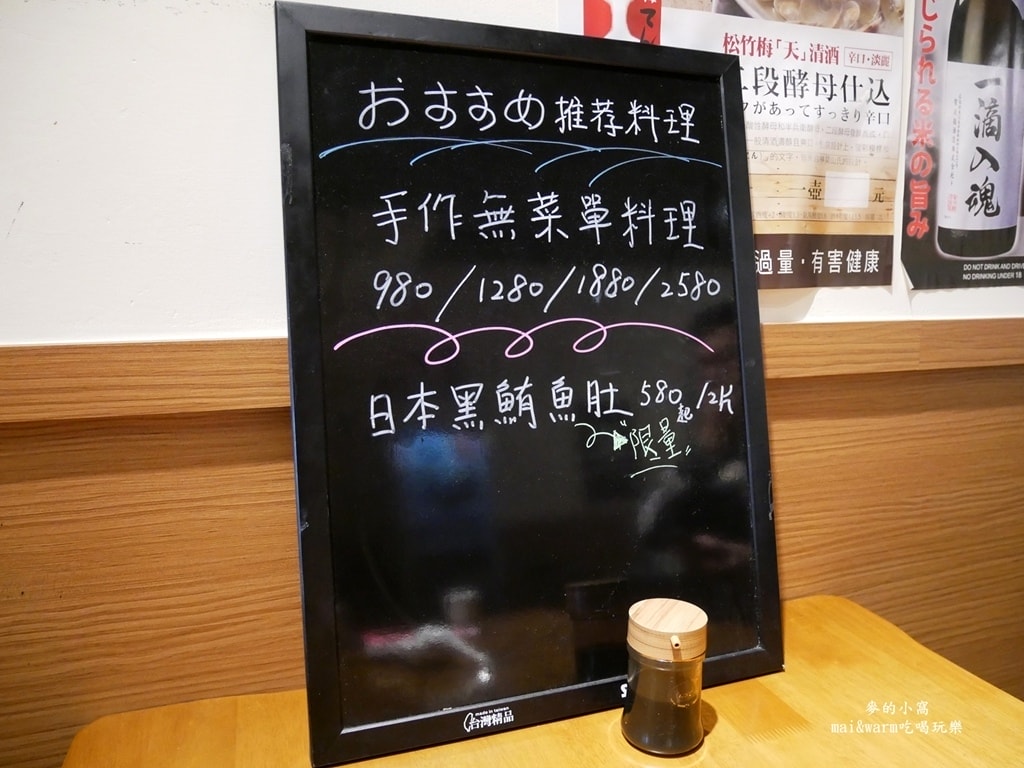 おすすめ推荐料理
手作無菜單料理
980/1280/1880/2580
日本黑鮪魚肚 580起/2片
限量
made in taiwan
台灣精品
松竹梅「天」清酒 辛口・淡麗
二段酵母仕込
フがあってすっきり辛口
一壺 元
過量・有害健康
じられる米の旨み
一滴入魂
DO NOT DRINK AND DRIVE
NO DRINKING UNDER 18
麥的小窩
mai&warm吃喝玩樂